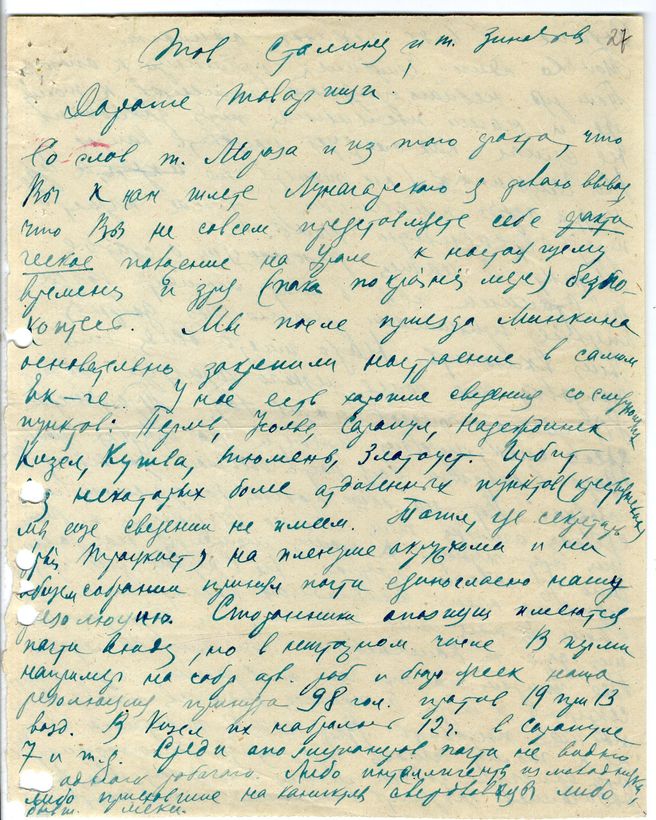 27
Тов Сталину и т. Зиновьев
Дорогие товарищи!
Со слов т. Мороза и из того факта, что
Вы к нам шлете Луначарского я делаю вывод
что Вы не совсем представляете себе факти
ческое поведение на Урале к настоящему
времени и зря (пока по крайней мере) беспо-
коитесь. Мы после приезда Минкина
основательно закрепили настроение в самом
Ек-ге. У нас есть хорошие сведения со следующих
пунктов: Пермь, Усолье, Сарапул, Надеждинск
Кизел, Кушва, Тюмень, Златоуст. Ирбит
из некоторых более отдаленных пунктов (
мы еще сведений не имеем. где секретарь
троцкист) на пленуме окружкома и на
общем собрании принял почти единогласно нашу
резолюцию. Сторонники оппозиции имеются
почти всюду, но в ничтожном числе В Перми
например на собр отв. раб и бюро ячеек наша
резолюция принята 98 гол. против 19 при 13
возд. В Кизел их набралось 12 ч. в Сарапуле
7 и т.д. Среди оппозиционеров почти не видно
одного рабочего. Либо интеллигенты из молодняка,
либо приехавшие на каникулы свердловцы либо
бывш. меки.